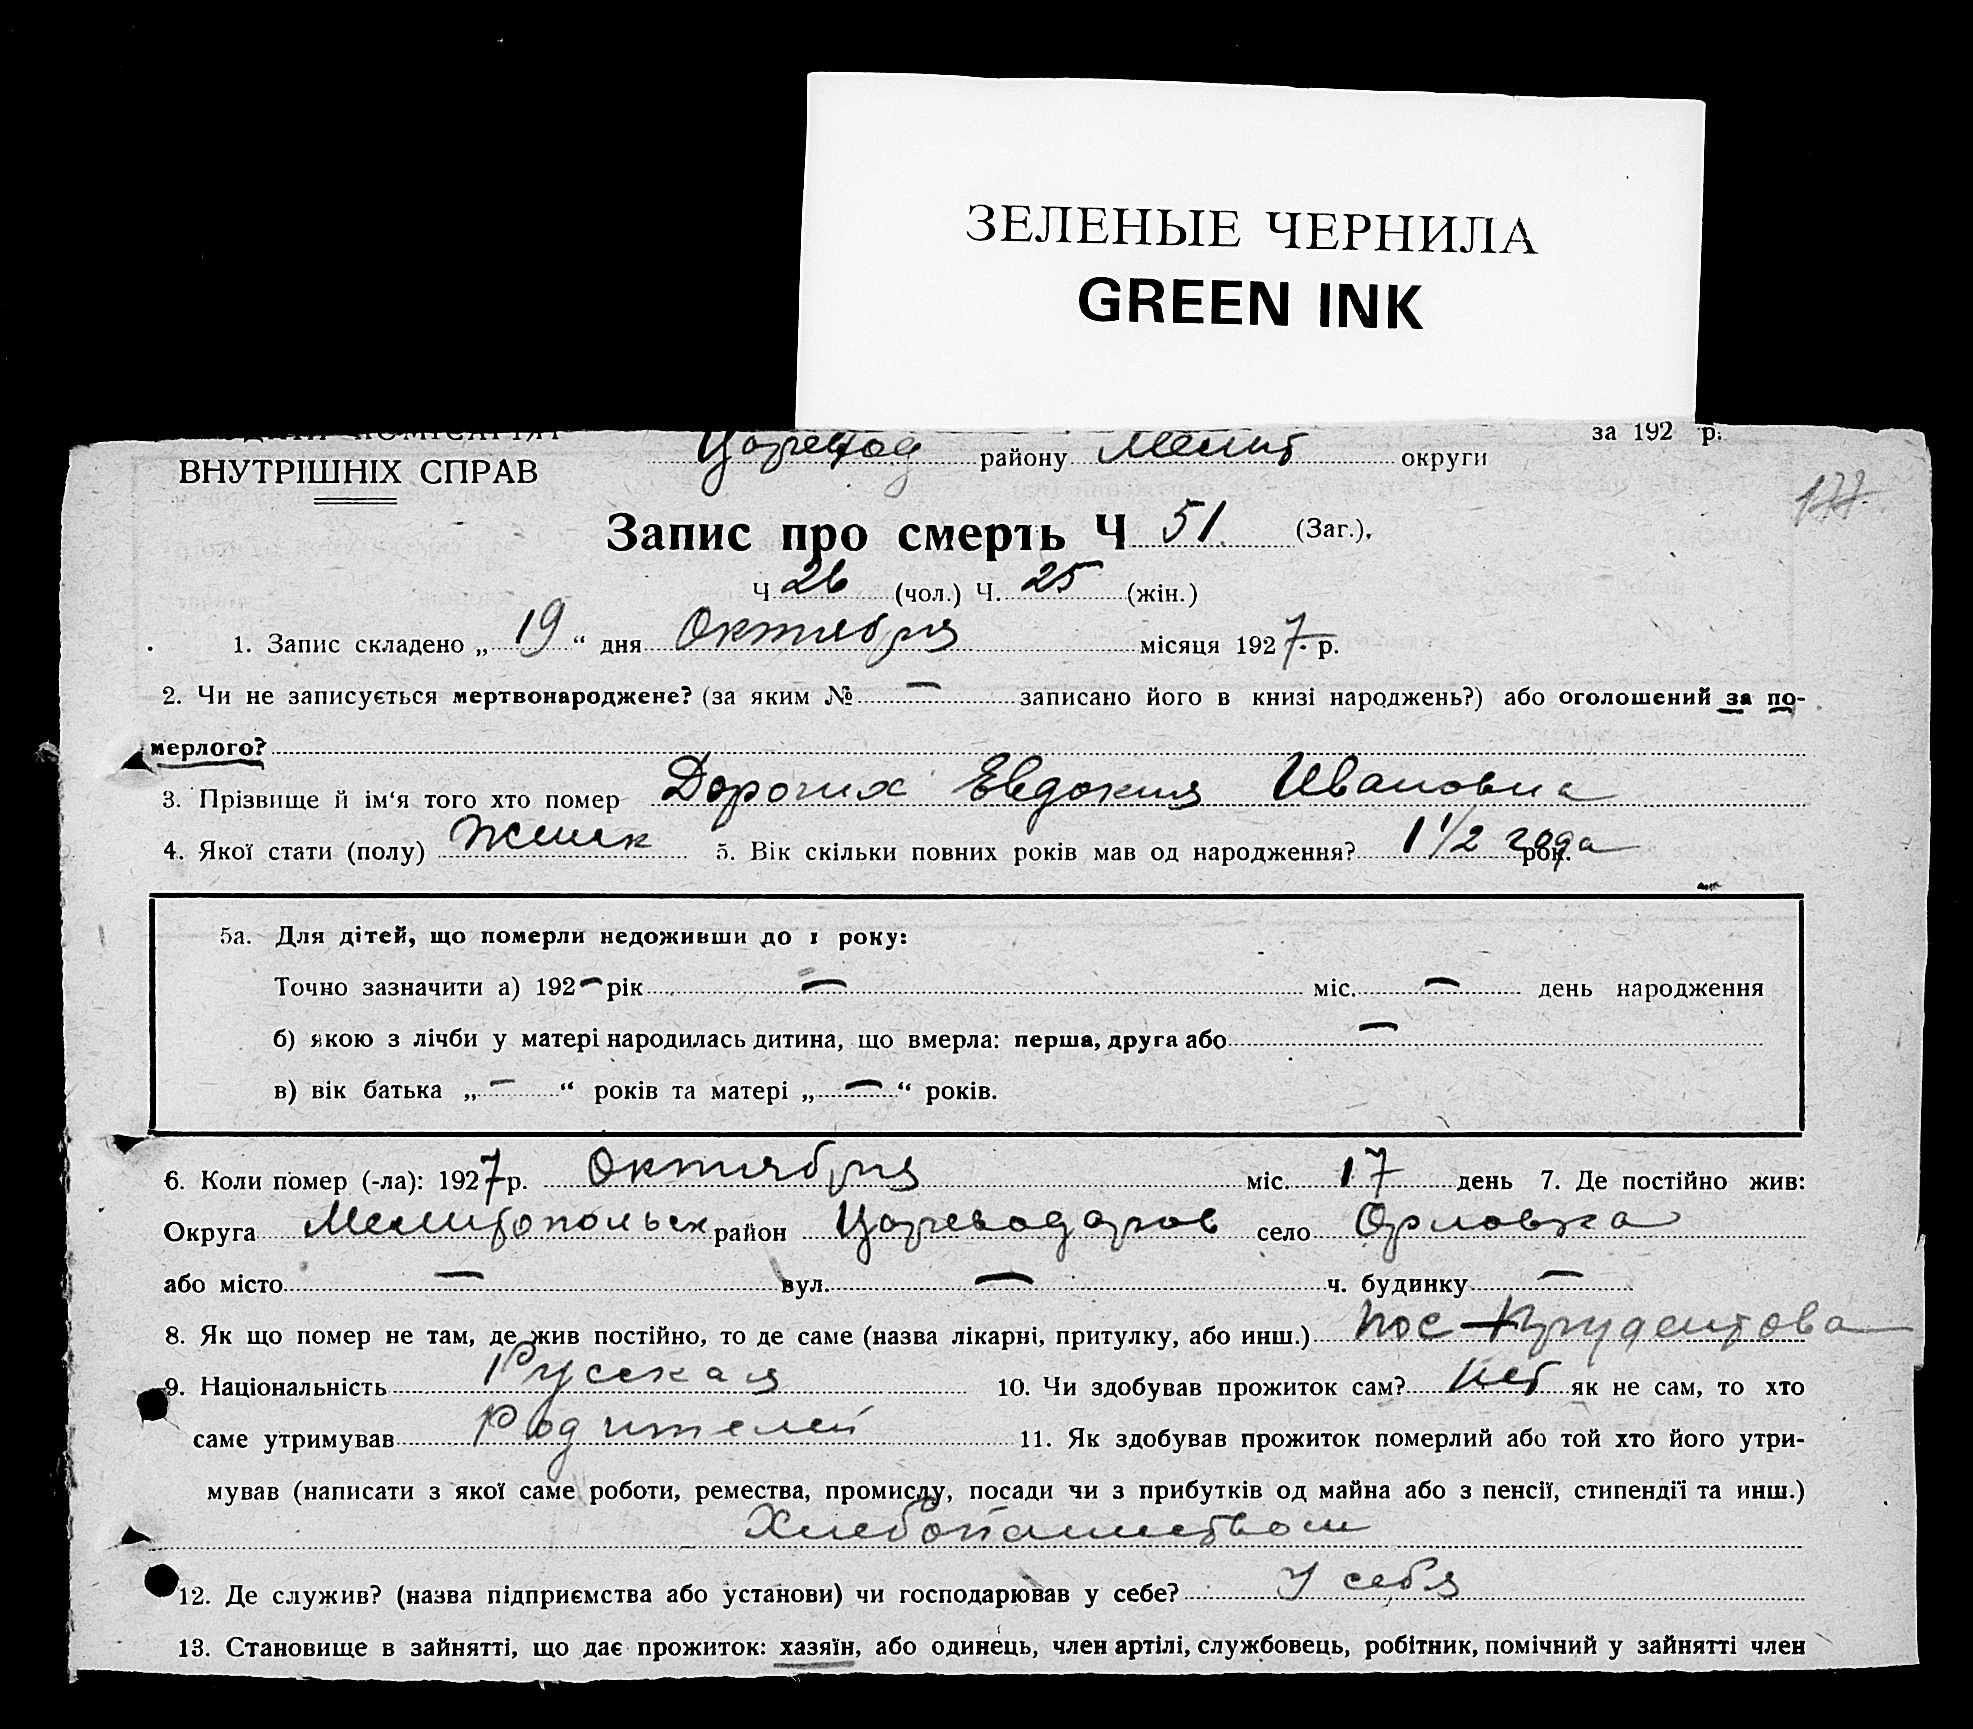 ЗЕЛЕНЫЕ ЧЕРНИЛА
GREEN INK
за 192 р.
ВНУТРІШНІХ СПРАВ Царевод району Мелит округи
177.
Запис про смерть Ч 51. (Заг.),
Ч 26 (чол.) Ч. 25 (жін.)
1. Запис складено „ 19 “ дня Октября місяця 1927 р.
2. Чи не записується мертвонароджене? (за яким № — записано його в книзі народжень?) або оголошений за по-
мерлого?
3. Прізвище й ім'я того хто помер Дорогих Евдокия Ивановна
4. Якої стати (полу) Женск 5. Вік скільки повних років мав од народження? 1 1/2 года рок.
5а. Для дітей, що померли недоживши до 1 року:
Точно зазначити а) 192— рік — міс. — день народження
б) якою з лічби у матері народилась дитина, що вмерла: перша, друга або —
в) вік батька „ — “ років та матері „ — “ років.
6. Коли помер (-ла): 1927 р. Октября міс. 17 день 7. Де постійно жив:
Округа Мелитопольск район Цареводаров село Орловка
або місто — вул. — ч. будинку —
8. Як що помер не там, де жив постійно, то де саме (назва лікарні, притулку, або инш.) пос Прудентова
9. Національність Русская 10. Чи здобував прожиток сам? нет як не сам, то хто
саме утримував Родителей 11. Як здобував прожиток померлий або той хто його утри-
мував (написати з якої саме роботи, ремества, промислу, посади чи з прибутків од майна або з пенсії, стипендії та инш.)
Хлебопашеством
12. Де служив? (назва підприємства або установи) чи господарював у себе? У себя
13. Становище в зайнятті, що дає прожиток: хазяїн, або одинець, член артілі, службовець, робітник, помічний у зайнятті член